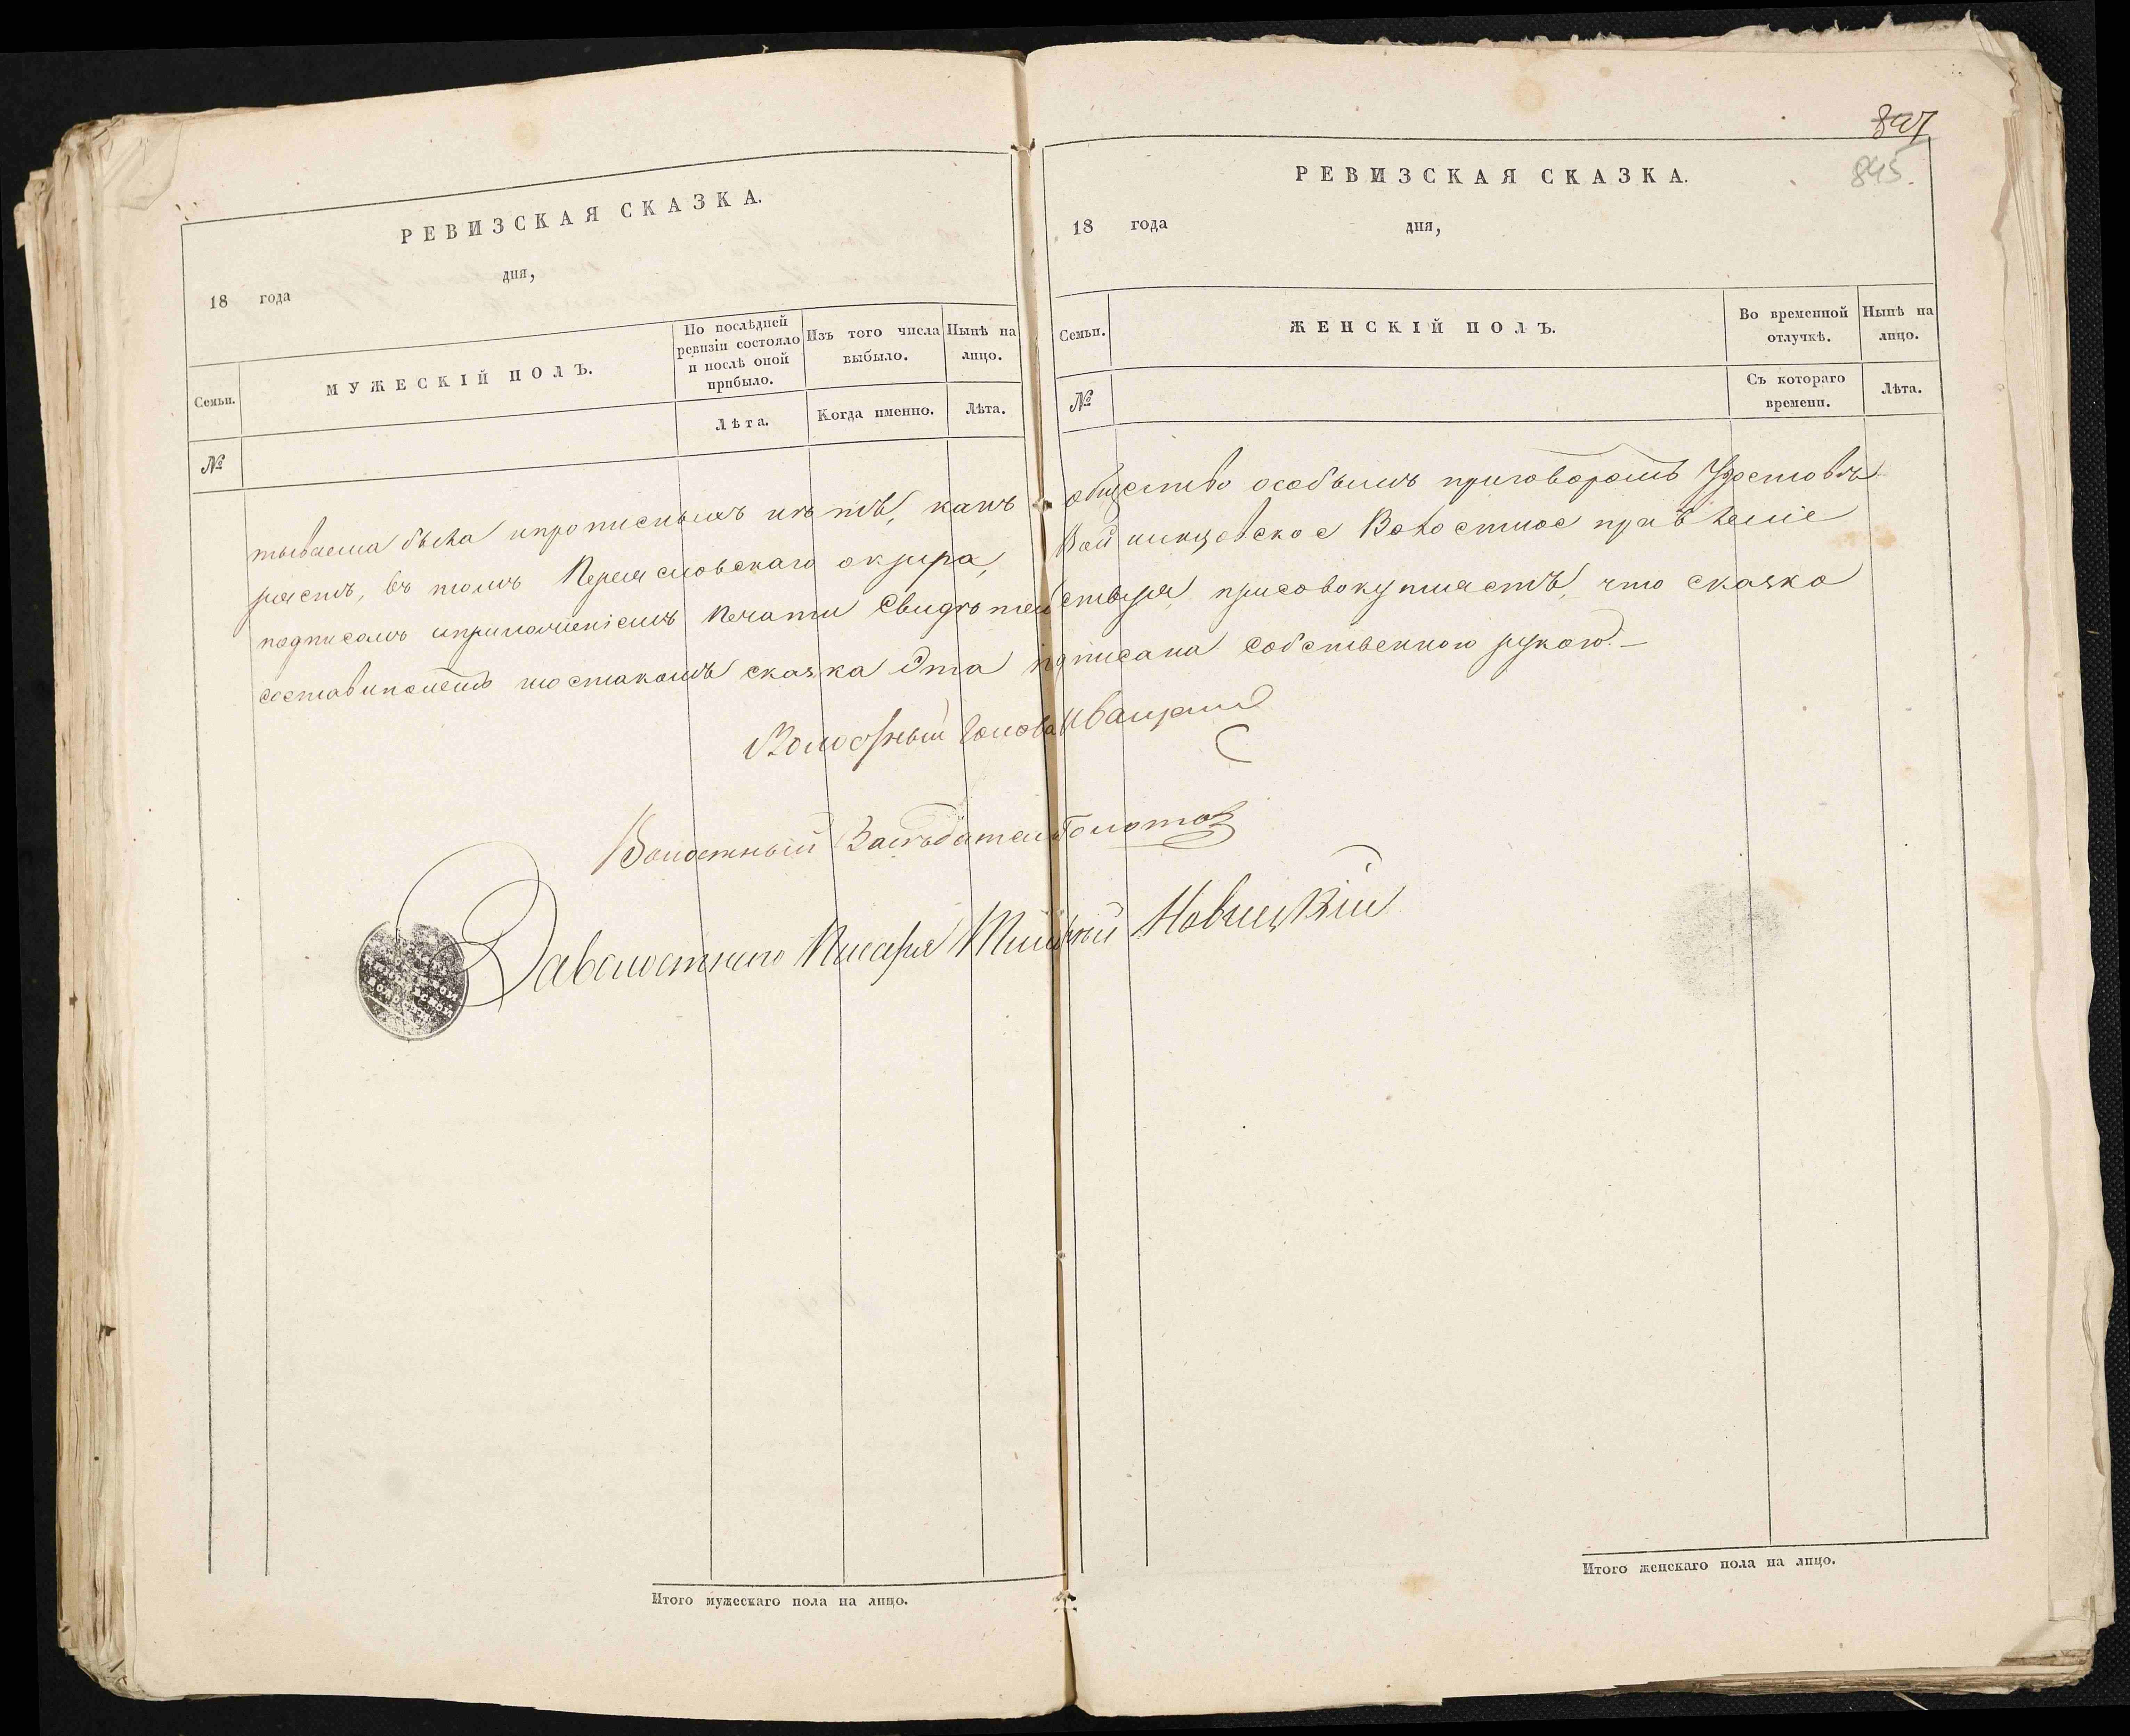 897
845.
РЕВИЗСКАЯ СКАЗКА.
18 года дня,
Семьи.
МУЖЕСКІЙ ПОЛЪ.
По послѣдней
ревизіи состояло
и послѣ оной
прибыло.
Изъ того числа
выбыло.
Нынѣ на
лицо.
№
Лѣта.
Когда именно.
Лѣта.
РЕВИЗСКАЯ СКАЗКА.
18 года дня,
Семьи.
ЖЕНСКІЙ ПОЛЪ.
Во временной
отлучкѣ.
Нынѣ на
лицо.
№
Съ котораго
времени.
Лѣта.
тываема была ипрописныхъ нѣтъ, какъ общество особымъ приговоромъ
ряетъ, въ томъ Переясловскаго округа, Войнинцовское Волостное правленіе
подписомъ иприложеніемъ Печати присовокупляетъ, что сказка
сказка Эта собственною рукою.—
Волостный Голова
Волостный Засѣдатель Болотов
Заволостнаго Писаря Новицкій
Итого мужескаго пола на лицо.
Итого женскаго пола на лицо.